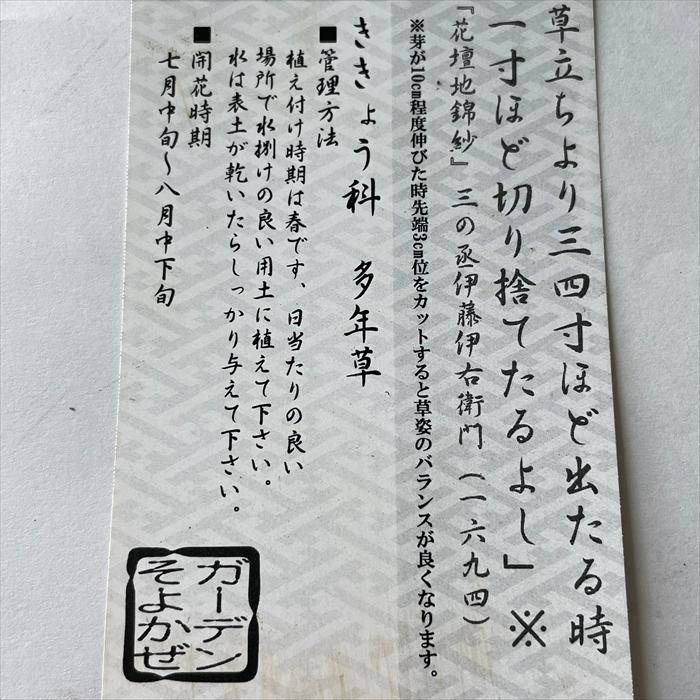 草立ちより三四寸ほど出たる時
一寸ほど切り捨てたるよし」※
『花壇地錦紗』三の丞伊藤伊右衛門（一六九四）
※芽が10cm程度伸びた時先端3cm位をカットすると草姿のバランスが良くなります。
ききょう科　多年草
■管理方法
植え付け時期は春です、日当たりの良い
場所で水捌けの良い用土に植えて下さい。
水は表土が乾いたらしっかり与えて下さい。
■開花時期
七月中旬～八月中下旬
ガーデン
そよかぜ